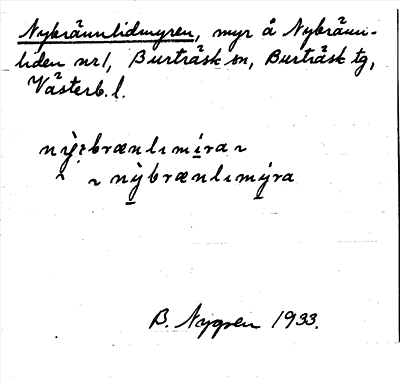 Nybrännlidmyren, myr å Nybränn-
liden nr 1, Burträsk sn, Burträsk tg,
Västerb. l.
nỳ:brænlımı́ra ~
~ nỳbrænlımýra
B. Nygren 1933.